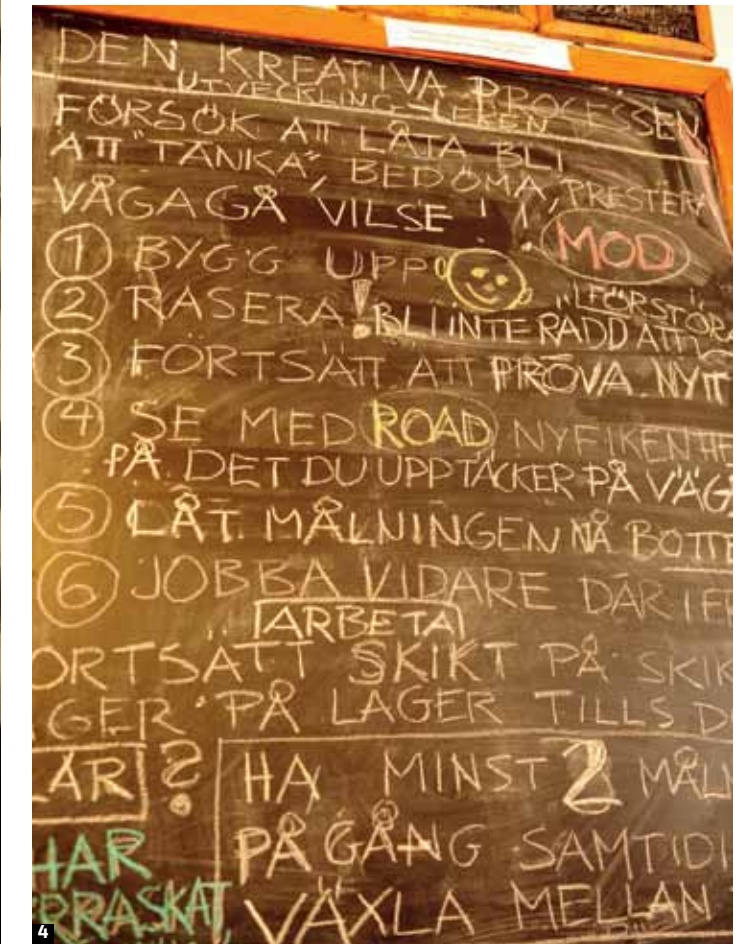 DEN KREATIVA PROCESSEN
UTVECKLING-LEKEN
FÖRSÖK ATT LÅTA BLI
ATT "TÄNKA", BEDÖMA, PRESTERA
VÅGA GÅ VILSE! !
MOD
1 BYGG UPP
2 RASERA! BLI INTE RÄDD ATT "FÖRSTÖRA"
3 FORTSÄTT ATT PRÖVA NYTT
4 SE MED ROAD NYFIKENHE
PÅ DET DU UPPTÄCKER PÅ VÄG
5 LÅT MÅLNINGEN NÅ BOTTE
6 JOBBA VIDARE DÄRIFR
ARBETA
ORTSÄTT SKIKT PÅ SKIK
AGER PÅ LAGER TILLS D
LAR? HA MINST 2 MÅLN
PÅ GÅNG SAMTIDI
HAR
RRASKAT
VÄXLA MELLAN
4